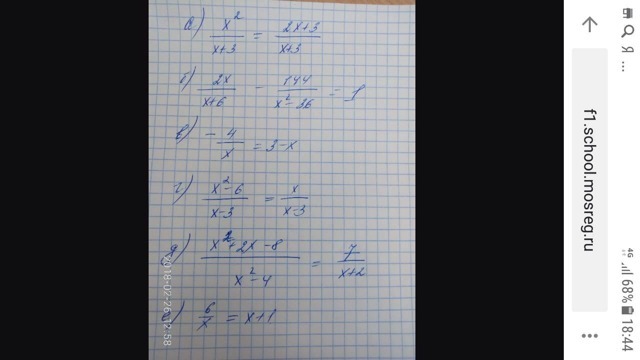 а) x²/(x+3) = (2x+3)/(x+3)
б) 2x/(x+6) - 144/(x²-36) = 1
в) -4/x = 3-x
г) (x²-6)/(x-3) = x/(x-3)
д) (x²+2x-8)/(x²-4) = 7/(x+2)
е) 6/x = x+1
f1.school.mosreg.ru
Я
4G
68%
18:44